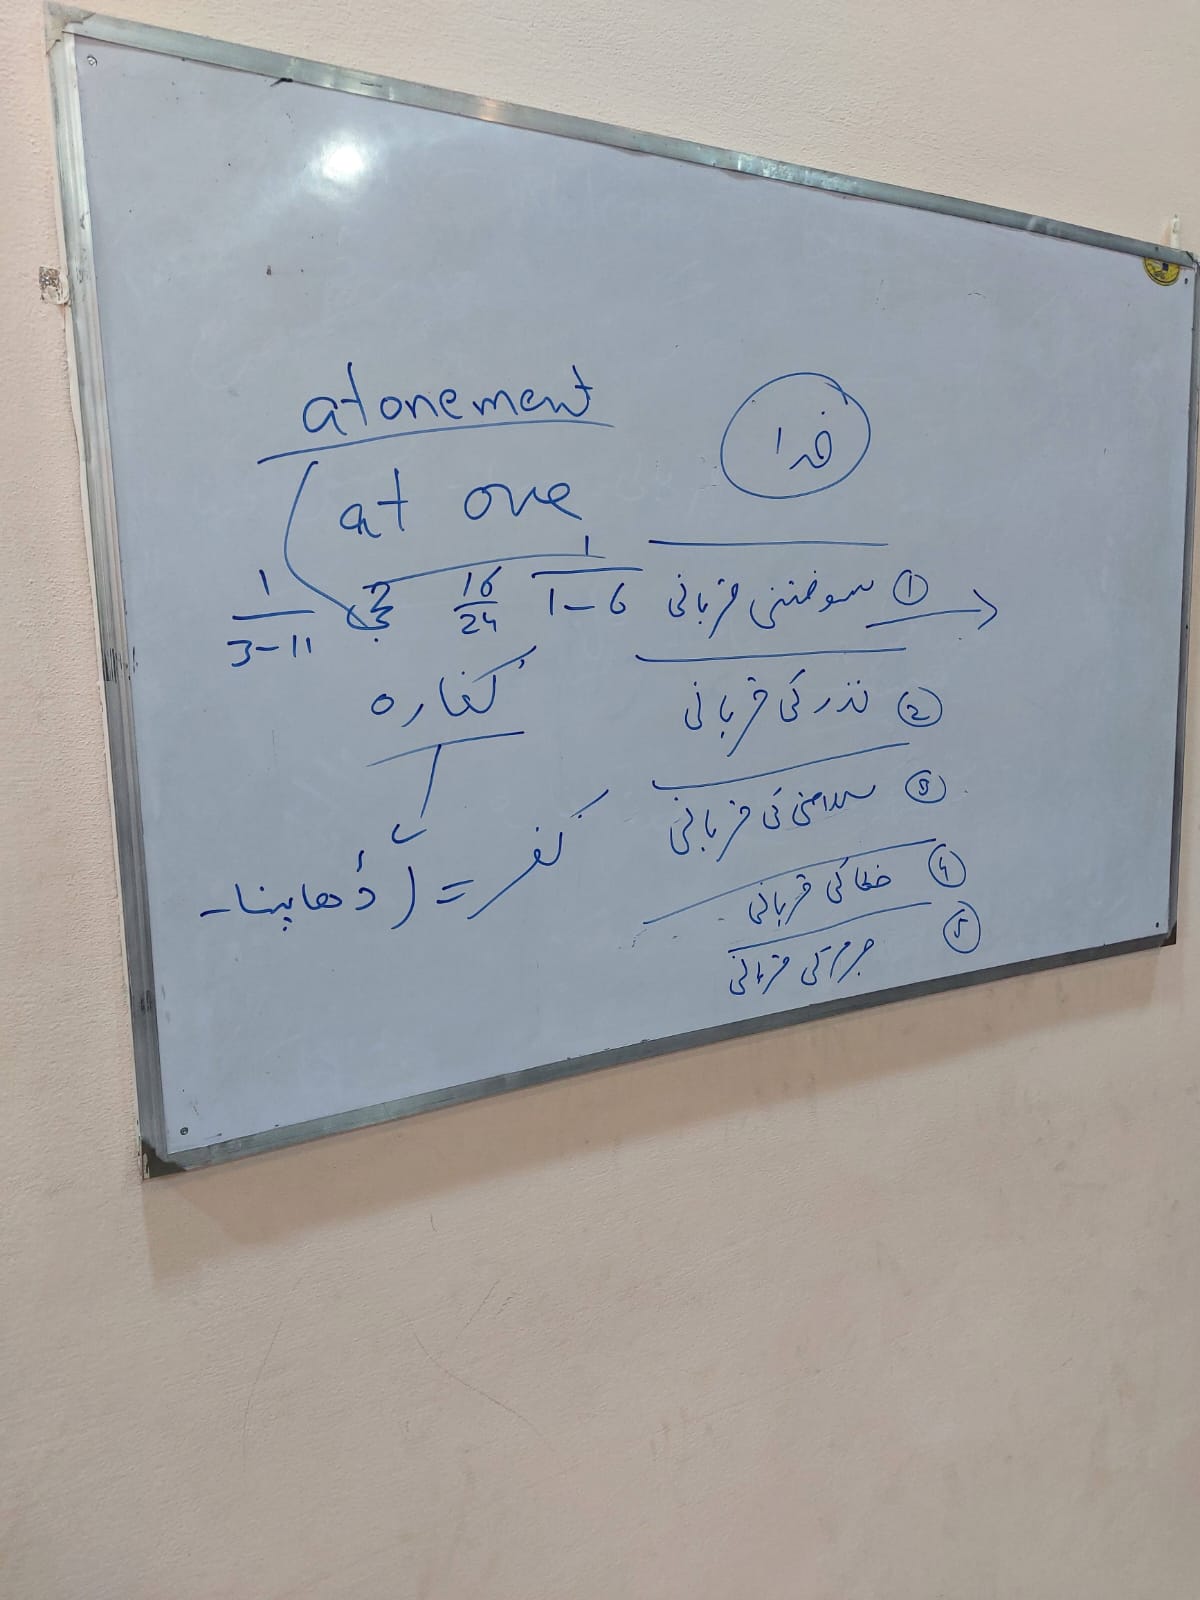 atonement
at one
خدا
① سوختنی قربانی
1
1-6
16
24
1
3-11
② نذر کی قربانی
③ سلامتی کی قربانی
④ خطا کی قربانی
⑤ جرم کی قربانی
کفارہ
کفر = ڈھاپنا-